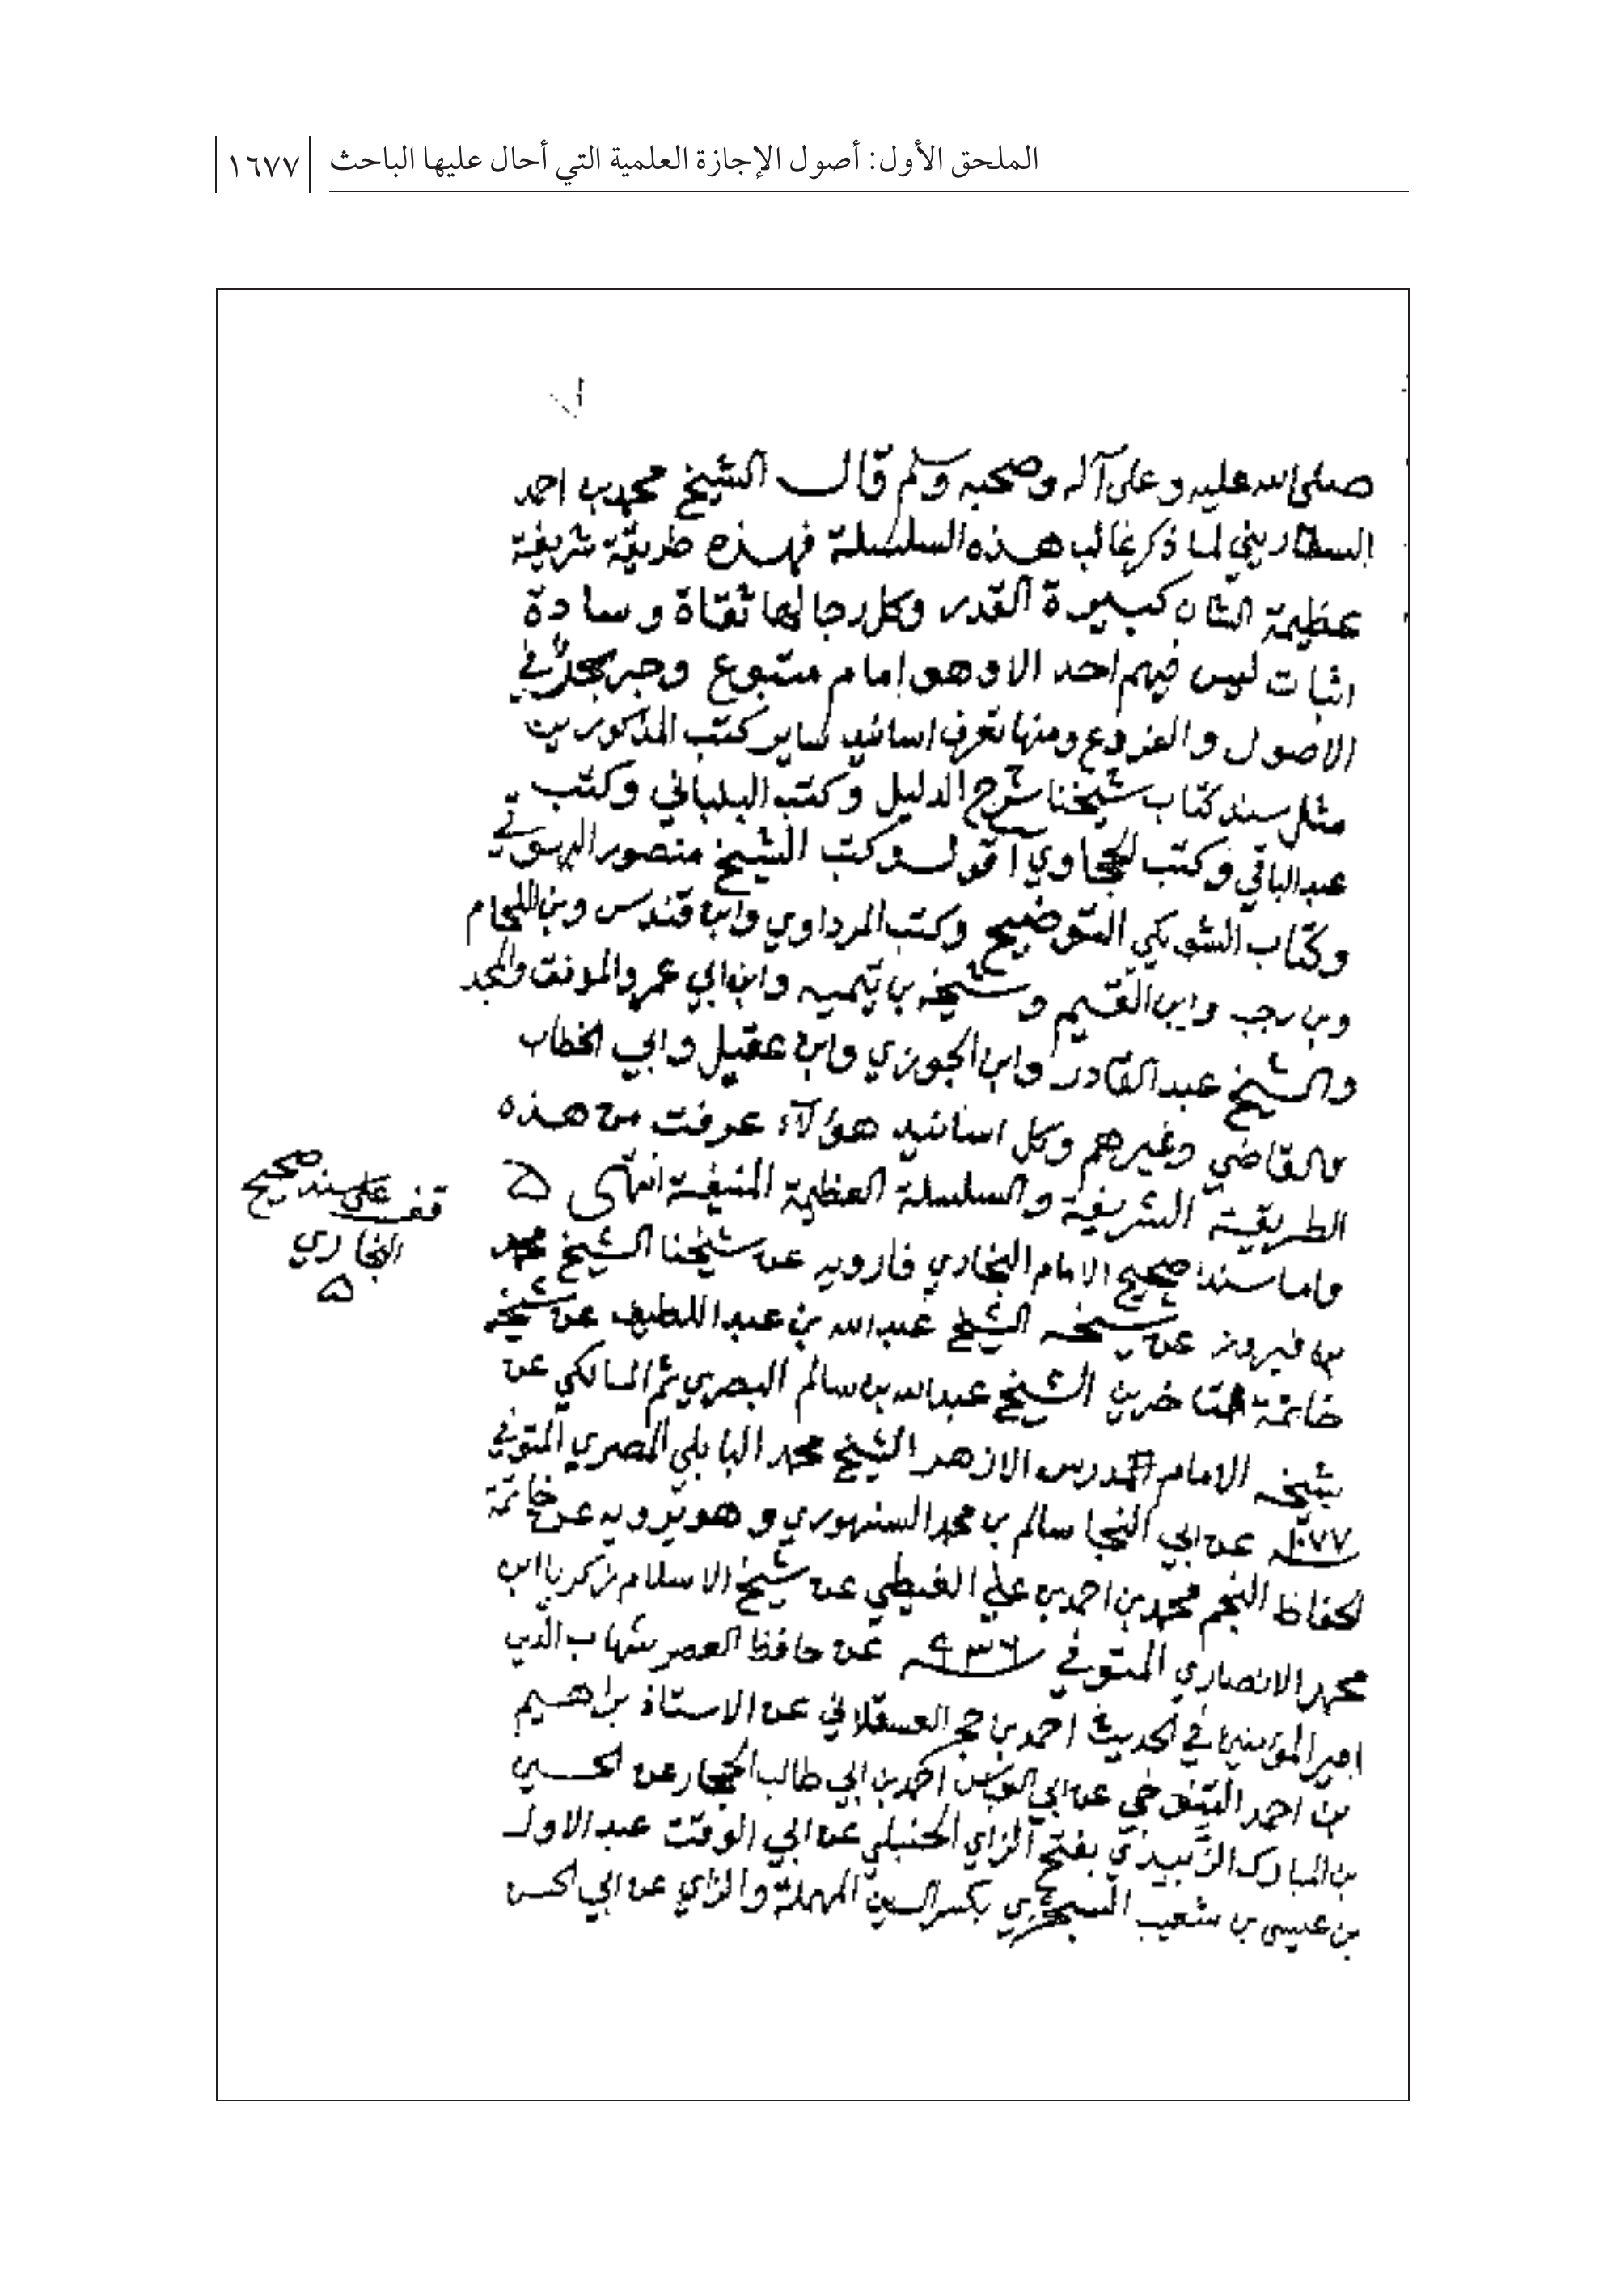 الملحق الأول: أصول الإجازة العلمية التي أحال عليها الباحث ١٦٧٧
صلى الله عليه وعلى آله وصحبه وسلم قال الشيخ محمد بن احمد
السفاريني لما ذكر غالب هذه السلسلة فهذه طريقة شريفة
عظيمة الشان كبيرة القدر وكل رجالها ثقاة وسادة
اثبات ليس فيهم احد الا وهو إمام متبوع وحبر بحر في
الاصول والفروع ومنها تعرف اسانيد ساير كتب المذكورين
مثل سند كتاب شيخنا شرح الدليل وكتب البلباني وكتب
عبد الباقي وكتب الحجاوي أقول وكتب الشيخ منصور البهوتي
وكتاب الشويكي التوضيح وكتب المرداوي وابن قندس وبن اللحام
وبن رجب وابن القيم وشيخه بن تيميه وابن ابي عمر والموفق والمجد
والشيخ عبد القادر وابن الجوزي وابن عقيل وابي الخطاب
كالقاضي وغيرهم وكل اسانيد هؤلآء عرفت من هذه
الطريقة الشريفة والسلسلة العظيمة المنيفة انتهى ه
واما سند صحيح الامام البخاري فارويه عن شيخنا الشيخ محمد
قف على سند صحيح
البخاري
ه
بن فيروز عن شيخه الشيخ عبد الله بن عبد اللطيف عن شيخه
خاتمة المتاخرين الشيخ عبد الله بن سالم البصري ثم المالكي عن
شيخه الامام المدرس الازهر الشيخ محمد البابلي المصري المتوفي
١٠٧٧ عن ابي النجا سالم بن محمد السنهوري وهو يرويه عن خاتمة
الحفاظ النجم محمد بن احمد بن علي الغيطي عن شيخ الاسلام زكريا ابن
محمد الانصاري المتوفي ٩٣٦ عن حافظ العصر شهاب الدين
امير المؤمنين في الحديث احمد بن حجر العسقلاني عن الاستاذ براهيم
بن احمد التنوخي عن ابي العباس احمد بن ابي طالب الحجار عن الحسين
بن المبارك الزبيدي بفتح الزاي الحنبلي عن ابي الوقت عبد الاول
بن عيسى بن شعيب السجزي بكسر السين المهملة والزاي عن ابي الحسن